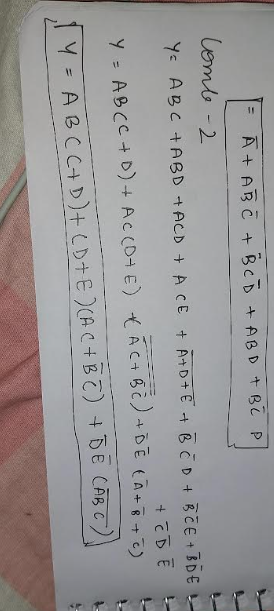 = A̅ + A̅B̅C̅ + B̅C̅D̅ + ABD + BC̅ D
Comb - 2
Y = ABC + ABD + ACD + ACE + A̅+D+E̅ + B̅C̅D + B̅C̅E + B̅D̅E̅
+ C̅D̅E̅
Y = AB(C+D) + AC(D+E) + (AC+B̅C̅) + D̅E̅ (A̅+B̅+C̅)
Y = AB(C+D) + (D+E)(AC+B̅C̅) + D̅E̅ (A̅B̅C̅)